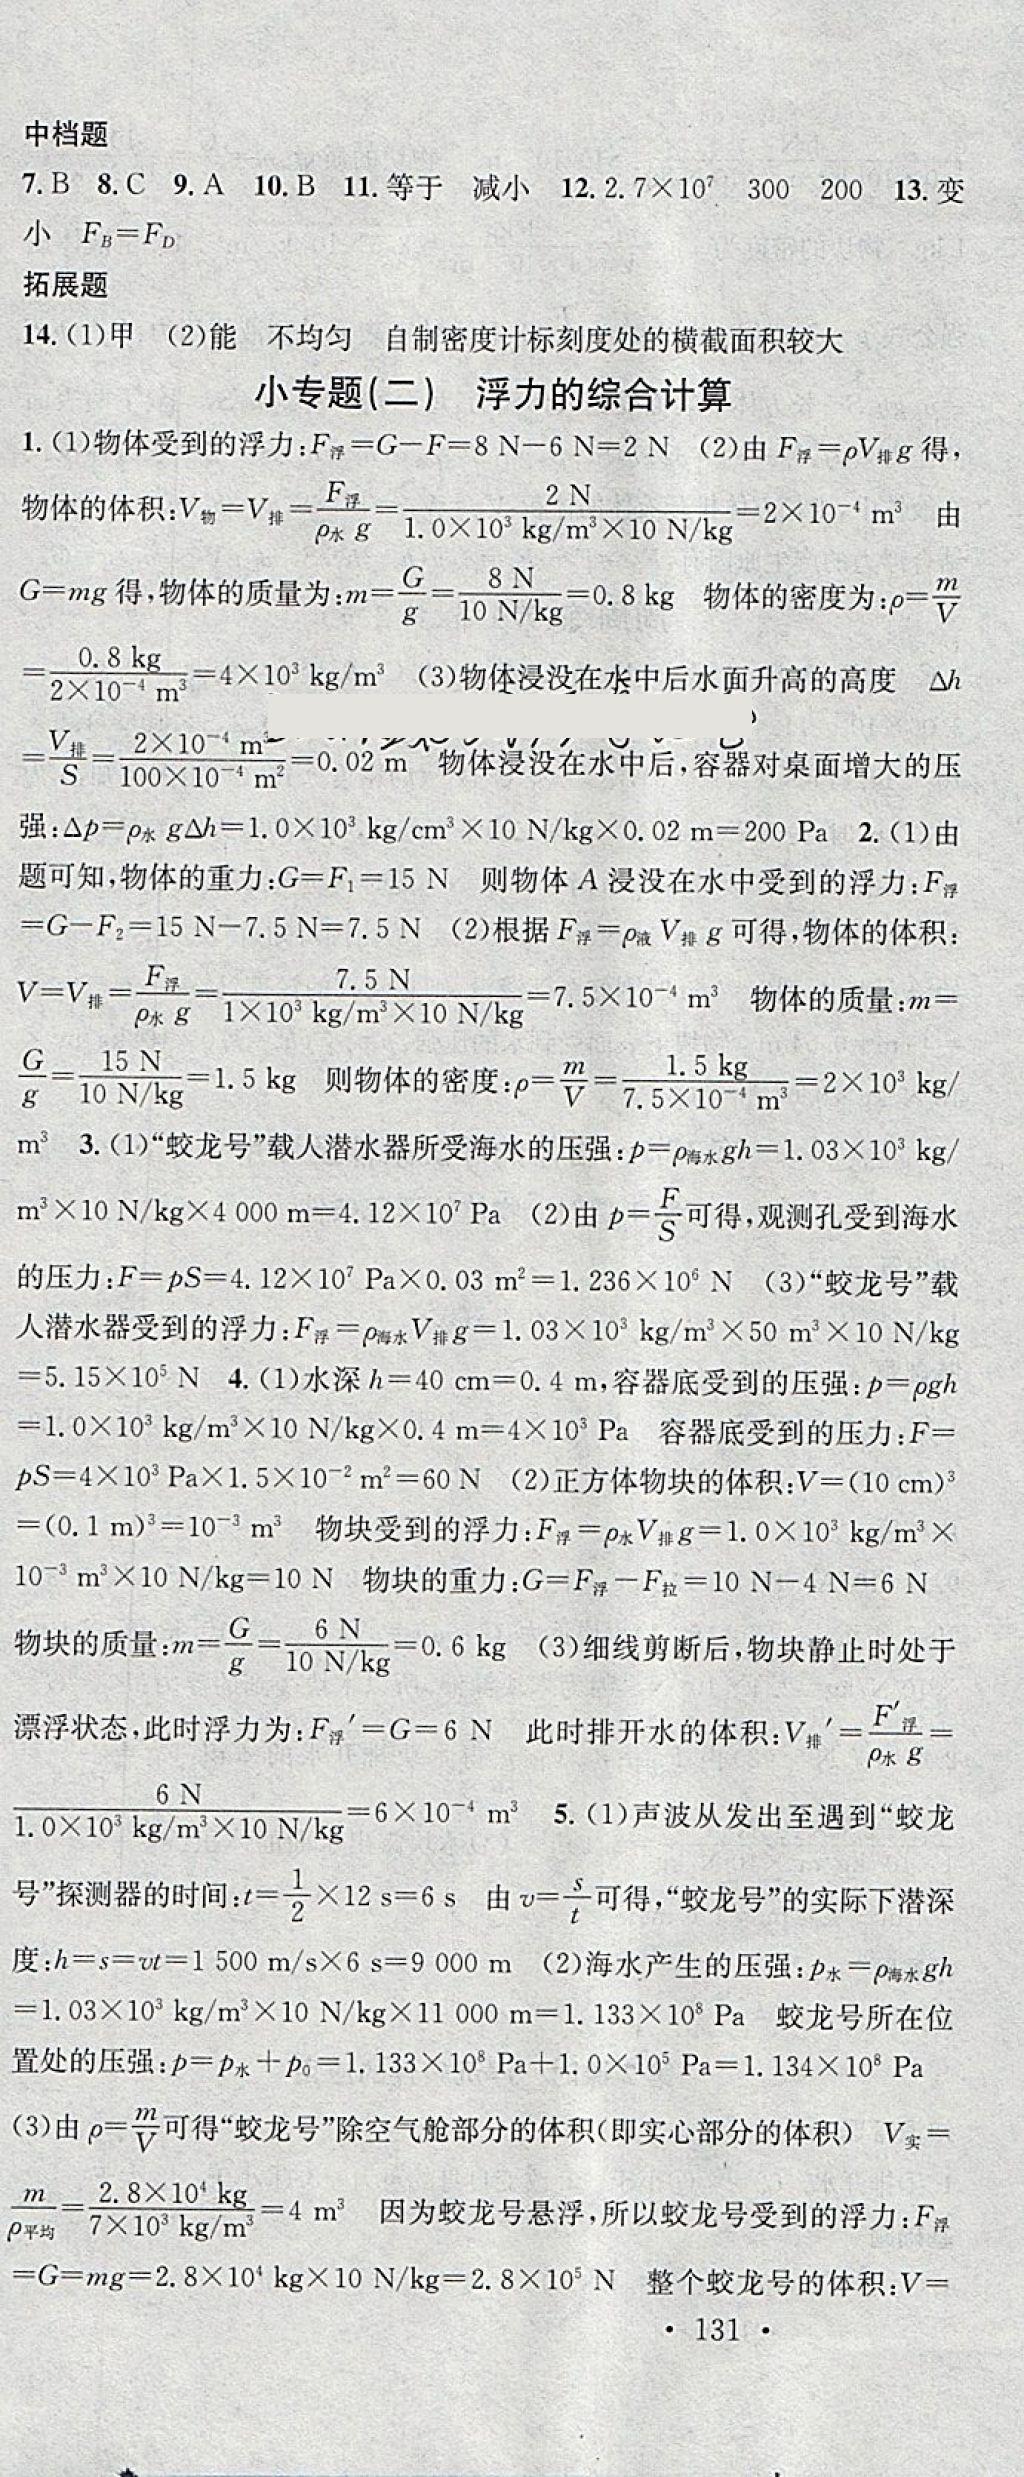 中档题
7. B 8. C 9. A 10. B 11. 等于 减小 12. 2.7×10⁷ 300 200 13. 变
小 F_B=F_D
拓展题
14. (1)甲 (2)能 不均匀 自制密度计标刻度处的横截面积较大
小专题(二) 浮力的综合计算
1. (1)物体受到的浮力:F浮=G-F=8 N-6 N=2 N (2)由 F浮=ρV排g 得,
物体的体积:V物=V排=F浮/(ρ水 g)=2 N/(1.0×10³ kg/m³×10 N/kg)=2×10⁻⁴ m³ 由
G=mg 得,物体的质量为:m=G/g=8 N/(10 N/kg)=0.8 kg 物体的密度为:ρ=m/V
=0.8 kg/(2×10⁻⁴ m³)=4×10³ kg/m³ (3)物体浸没在水中后水面升高的高度 Δh
=V排/S=2×10⁻⁴ m³/(100×10⁻⁴ m²)=0.02 m 物体浸没在水中后,容器对桌面增大的压
强:Δp=ρ水 gΔh=1.0×10³ kg/cm³×10 N/kg×0.02 m=200 Pa 2. (1)由
题可知,物体的重力:G=F₁=15 N 则物体 A 浸没在水中受到的浮力:F浮
=G-F₂=15 N-7.5 N=7.5 N (2)根据 F浮=ρ液 V排 g 可得,物体的体积:
V=V排=F浮/(ρ水 g)=7.5 N/(1×10³ kg/m³×10 N/kg)=7.5×10⁻⁴ m³ 物体的质量:m=
G/g=15 N/(10 N/kg)=1.5 kg 则物体的密度:ρ=m/V=1.5 kg/(7.5×10⁻⁴ m³)=2×10³ kg/
m³ 3. (1)“蛟龙号”载人潜水器所受海水的压强:p=ρ海水gh=1.03×10³ kg/
m³×10 N/kg×4 000 m=4.12×10⁷ Pa (2)由 p=F/S可得,观测孔受到海水
的压力:F=pS=4.12×10⁷ Pa×0.03 m²=1.236×10⁶ N (3)“蛟龙号”载
人潜水器受到的浮力:F浮=ρ海水V排g=1.03×10³ kg/m³×50 m³×10 N/kg
=5.15×10⁵ N 4. (1)水深 h=40 cm=0.4 m,容器底受到的压强:p=ρgh
=1.0×10³ kg/m³×10 N/kg×0.4 m=4×10³ Pa 容器底受到的压力:F=
pS=4×10³ Pa×1.5×10⁻² m²=60 N (2)正方体物块的体积:V=(10 cm)³
=(0.1 m)³=10⁻³ m³ 物块受到的浮力:F浮=ρ水V排g=1.0×10³ kg/m³×
10⁻³ m³×10 N/kg=10 N 物块的重力:G=F浮-F拉=10 N-4 N=6 N
物块的质量:m=G/g=6 N/(10 N/kg)=0.6 kg (3)细线剪断后,物块静止时处于
漂浮状态,此时浮力为:F浮′=G=6 N 此时排开水的体积:V排′=F′浮/(ρ水 g)=
6 N/(1.0×10³ kg/m³×10 N/kg)=6×10⁻⁴ m³ 5. (1)声波从发出至遇到“蛟龙
号”探测器的时间:t=1/2×12 s=6 s 由 v=s/t可得,“蛟龙号”的实际下潜深
度:h=s=vt=1 500 m/s×6 s=9 000 m (2)海水产生的压强:p水=ρ海水gh
=1.03×10³ kg/m³×10 N/kg×11 000 m=1.133×10⁸ Pa 蛟龙号所在位
置处的压强:p=p水+p₀=1.133×10⁸ Pa+1.0×10⁵ Pa=1.134×10⁸ Pa
(3)由 ρ=m/V可得“蛟龙号”除空气舱部分的体积(即实心部分的体积) V实=
m/ρ平均=2.8×10⁴ kg/(7×10³ kg/m³)=4 m³ 因为蛟龙号悬浮,所以蛟龙号受到的浮力:F浮
=G=mg=2.8×10⁴ kg×10 N/kg=2.8×10⁵ N 整个蛟龙号的体积:V=
· 131 ·